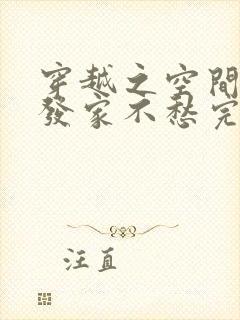 穿越之空間
發家不愁完
汪直